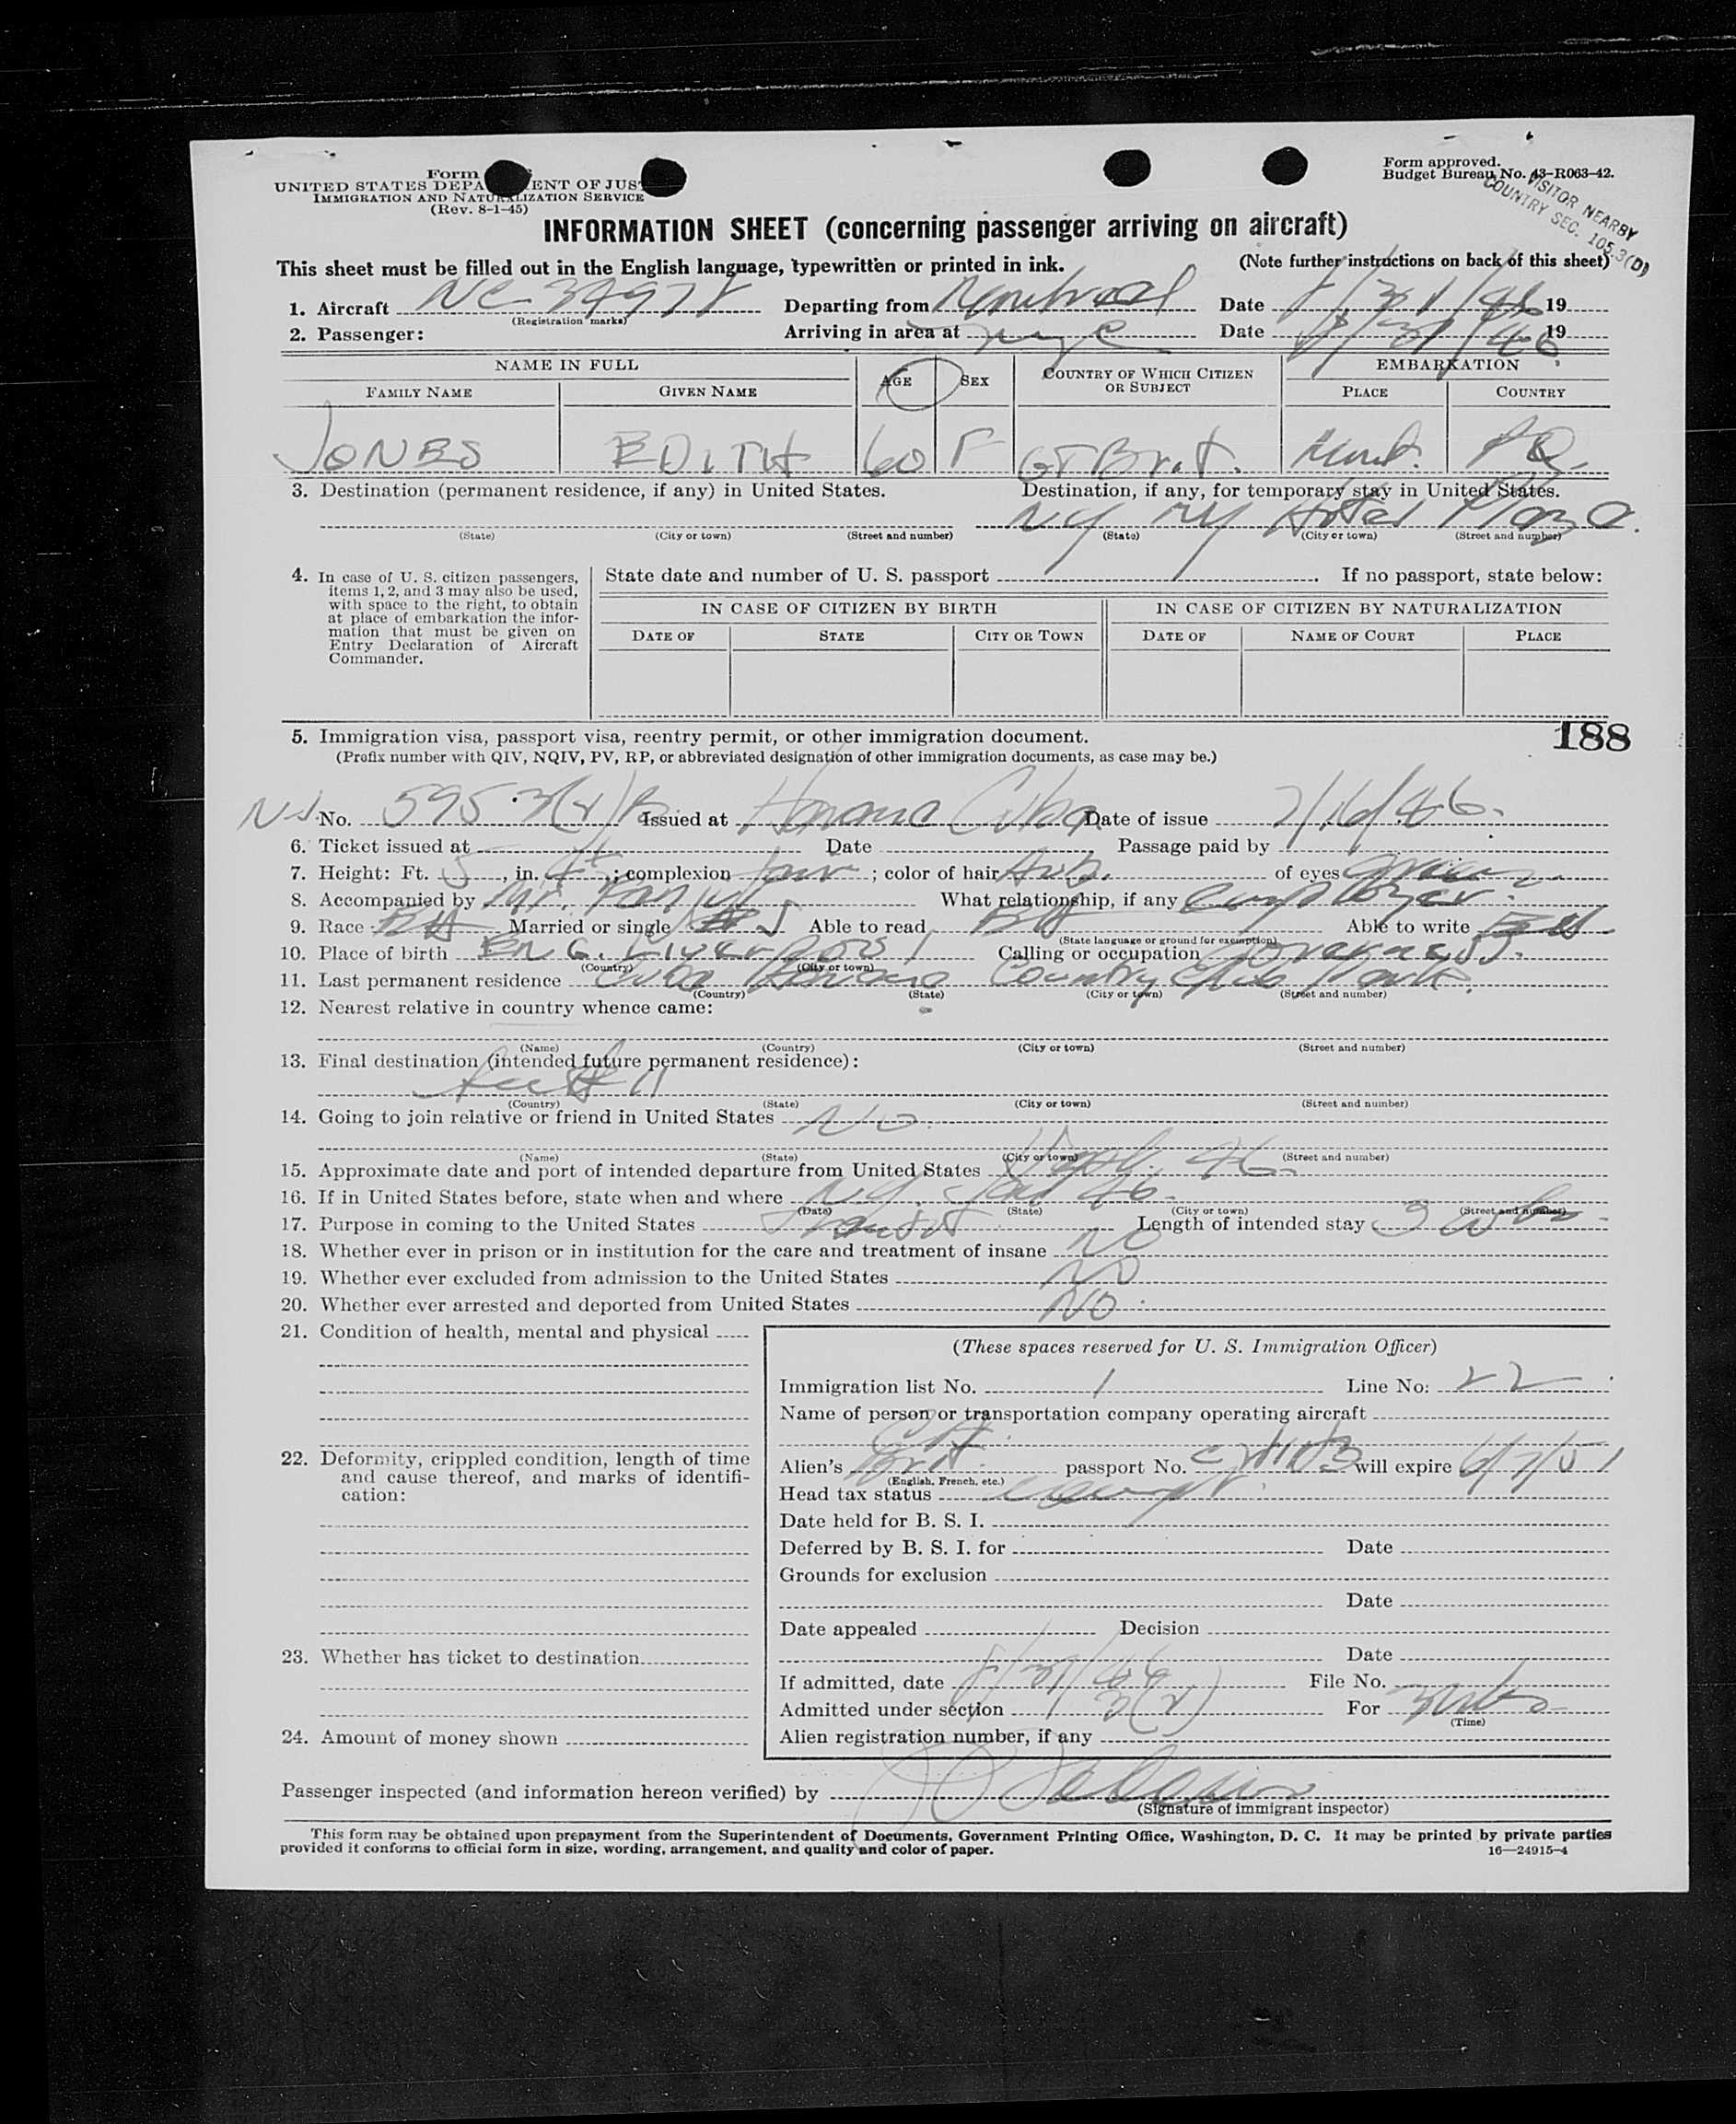 Form
UNITED STATES DEPA ENT OF JUS
IMMIGRATION AND NATURALIZATION SERVICE
(Rev. 8-1-45)
Form approved.
Budget Bureau No. 43-R063-42.
VISITOR NEARBY
COUNTRY SEC. 105.3(D)
INFORMATION SHEET (concerning passenger arriving on aircraft)
This sheet must be filled out in the English language, typewritten or printed in ink. (Note further instructions on back of this sheet)
1. Aircraft NC 34978 Departing from Montreal Date 8/31/46 19
(Registration marks)
2. Passenger: Arriving in area at nyc Date 8/31/46 19
NAME IN FULL AGE SEX COUNTRY OF WHICH CITIZEN OR SUBJECT EMBARKATION
FAMILY NAME GIVEN NAME PLACE COUNTRY
JONES EDITH 60 F GT Brit. Mont. PQ.
3. Destination (permanent residence, if any) in United States. Destination, if any, for temporary stay in United States.
NY NY Hotel Plaza.
(State) (City or town) (Street and number) (State) (City or town) (Street and number)
4. In case of U. S. citizen passengers, items 1, 2, and 3 may also be used, with space to the right, to obtain at place of embarkation the information that must be given on Entry Declaration of Aircraft Commander.
State date and number of U. S. passport . If no passport, state below:
IN CASE OF CITIZEN BY BIRTH IN CASE OF CITIZEN BY NATURALIZATION
DATE OF STATE CITY OR TOWN DATE OF NAME OF COURT PLACE
188
5. Immigration visa, passport visa, reentry permit, or other immigration document.
(Prefix number with QIV, NQIV, PV, RP, or abbreviated designation of other immigration documents, as case may be.)
No. 595 3(2) Issued at Havana Cuba Date of issue 7/16/46.
6. Ticket issued at Date Passage paid by
7. Height: Ft. 5, in. 4; complexion fair; color of hair Aub. of eyes green
8. Accompanied by Mr. What relationship, if any employer
9. Race Married or single S Able to read Able to write
(State language or ground for exemption)
10. Place of birth ENG. Liverpool Calling or occupation Governess.
(Country) (City or town)
11. Last permanent residence Cuba Havana Country Club Park.
(Country) (State) (City or town) (Street and number)
12. Nearest relative in country whence came:
(Name) (Country) (City or town) (Street and number)
13. Final destination (intended future permanent residence):
see # 11
(Country) (State) (City or town) (Street and number)
14. Going to join relative or friend in United States No
(Name) (State) (City or town) (Street and number)
15. Approximate date and port of intended departure from United States Sept. 46.
16. If in United States before, state when and where NY. 46.
(Date) (State) (City or town) (Street and number)
17. Purpose in coming to the United States Transit Length of intended stay 3 wks
18. Whether ever in prison or in institution for the care and treatment of insane NO
19. Whether ever excluded from admission to the United States NO
20. Whether ever arrested and deported from United States NO
21. Condition of health, mental and physical
22. Deformity, crippled condition, length of time and cause thereof, and marks of identification:
23. Whether has ticket to destination
24. Amount of money shown
(These spaces reserved for U. S. Immigration Officer)
Immigration list No. 1 Line No: 22
Name of person or transportation company operating aircraft
Alien's Brit. passport No. will expire 6/7/51
(English, French, etc.)
Head tax status exempt.
Date held for B. S. I.
Deferred by B. S. I. for Date
Grounds for exclusion
Date
Date appealed Decision
Date
If admitted, date 8/31/46 File No.
Admitted under section 3(2) For 3 wks
(Time)
Alien registration number, if any
Passenger inspected (and information hereon verified) by
(Signature of immigrant inspector)
This form may be obtained upon prepayment from the Superintendent of Documents, Government Printing Office, Washington, D. C. It may be printed by private parties
provided it conforms to official form in size, wording, arrangement, and quality and color of paper. 16—24915-4